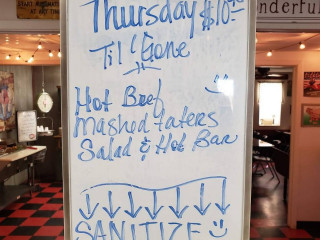 Thursday $10
Til' Gone
Hot Beef
Mashed taters
Salad & Hot Bar
SANITIZE